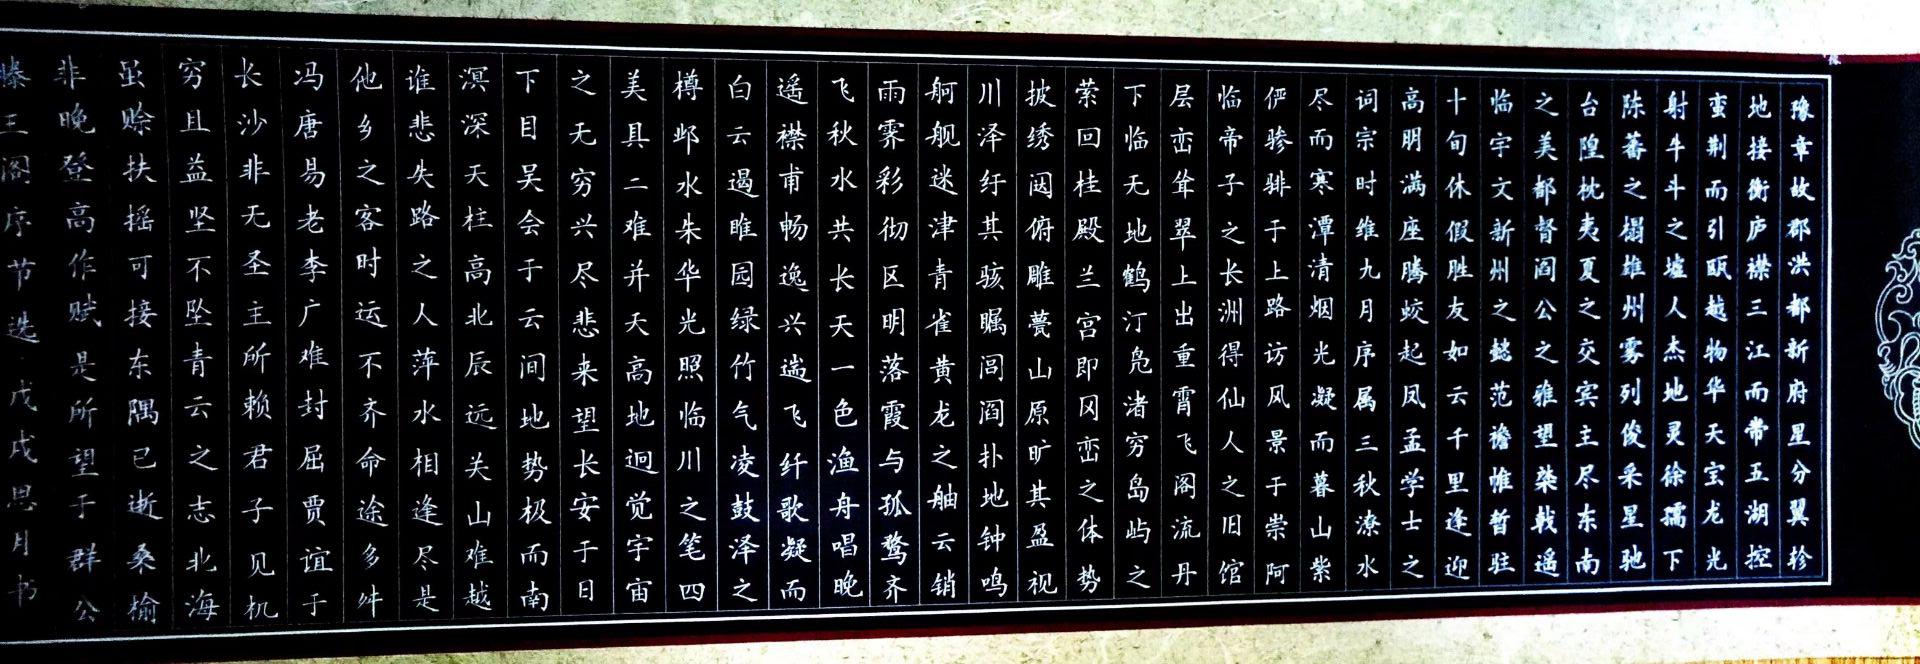 豫章故郡洪都新府星分翼轸
地接衡庐襟三江而带五湖控
蛮荆而引瓯越物华天宝龙光
射牛斗之墟人杰地灵徐孺下
陈蕃之榻雄州雾列俊采星驰
台隍枕夷夏之交宾主尽东南
之美都督阎公之雅望棨戟遥
临宇文新州之懿范襜帷暂驻
十旬休假胜友如云千里逢迎
高朋满座腾蛟起凤孟学士之
词宗时维九月序属三秋潦水
尽而寒潭清烟光凝而暮山紫
俨骖騑于上路访风景于崇阿
临帝子之长洲得仙人之旧馆
层峦耸翠上出重霄飞阁流丹
下临无地鹤汀凫渚穷岛屿之
萦回桂殿兰宫即冈峦之体势
披绣闼俯雕甍山原旷其盈视
川泽纡其骇瞩闾阎扑地钟鸣
舸舰迷津青雀黄龙之舳云销
雨霁彩彻区明落霞与孤鹜齐
飞秋水共长天一色渔舟唱晚
遥襟甫畅逸兴遄飞纤歌凝而
白云遏睢园绿竹气凌鼓泽之
樽邺水朱华光照临川之笔四
美具二难并天高地迥觉宇宙
之无穷兴尽悲来望长安于日
下目吴会于云间地势极而南
溟深天柱高北辰远关山难越
谁悲失路之人萍水相逢尽是
他乡之客时运不齐命途多舛
冯唐易老李广难封屈贾谊于
长沙非无圣主所赖君子见机
穷且益坚不坠青云之志北海
虽赊扶摇可接东隅已逝桑榆
非晚登高作赋是所望于群公
滕王阁序节选戊戌思月书